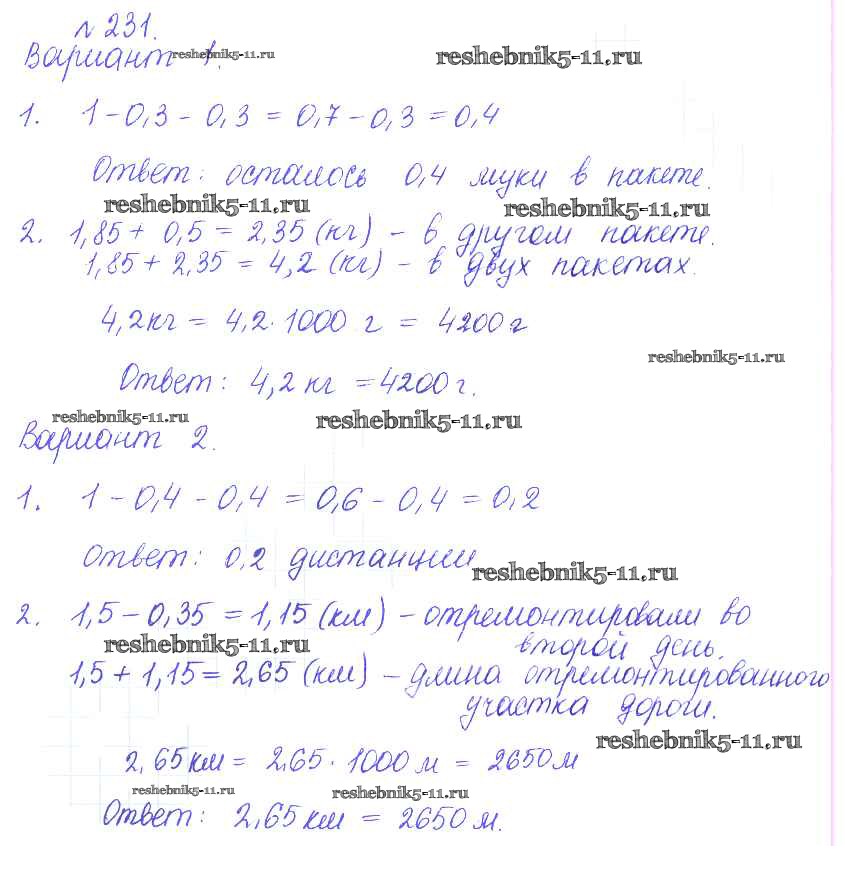 № 231.
Вариант 1. reshebnik5-11.ru reshebnik5-11.ru
1. 1 - 0,3 - 0,3 = 0,7 - 0,3 = 0,4
Ответ: осталось 0,4 муки в пакете.
reshebnik5-11.ru reshebnik5-11.ru
2. 1,85 + 0,5 = 2,35 (кг) - в другом пакете.
1,85 + 2,35 = 4,2 (кг) - в двух пакетах.
4,2кг = 4,2 · 1000 г = 4200 г
reshebnik5-11.ru
Ответ: 4,2 кг = 4200 г.
reshebnik5-11.ru reshebnik5-11.ru
Вариант 2.
1. 1 - 0,4 - 0,4 = 0,6 - 0,4 = 0,2
Ответ: 0,2 дистанции
reshebnik5-11.ru
2. 1,5 - 0,35 = 1,15 (км) - отремонтировали во
reshebnik5-11.ru второй день.
1,5 + 1,15 = 2,65 (км) - длина отремонтированного
участка дороги.
reshebnik5-11.ru
2,65 км = 2,65 · 1000 м = 2650 м
reshebnik5-11.ru reshebnik5-11.ru
Ответ: 2,65 км = 2650 м.